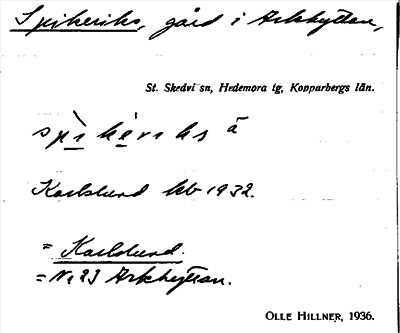 Spikeriks, gård i Arkhyttan,
St. Skedvi sn, Hedemora tg, Kopparbergs län.
spì keriks ä
Karlslund kb 1932.
= Karlslund.
= No 23 Arkhyttan.
OLLE HILLNER, 1936.